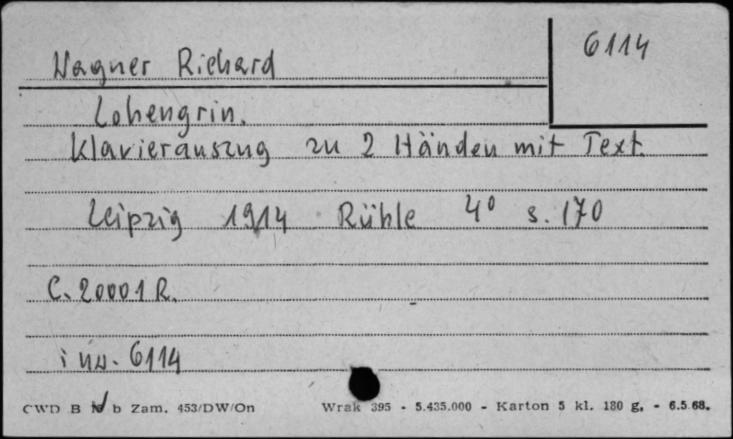 6114
Wagner Richard
Lohengrin.
Klavierauszug zu 2 Händen mit Text.
Leipzig 1914 Rühle 4⁰ s. 170
C. 20001 R.
inw. 6114
CWD B b Zam. 453/DW/On Wrak 395 - 5.435.000 - Karton 5 kl. 180 g. - 6.5.68.